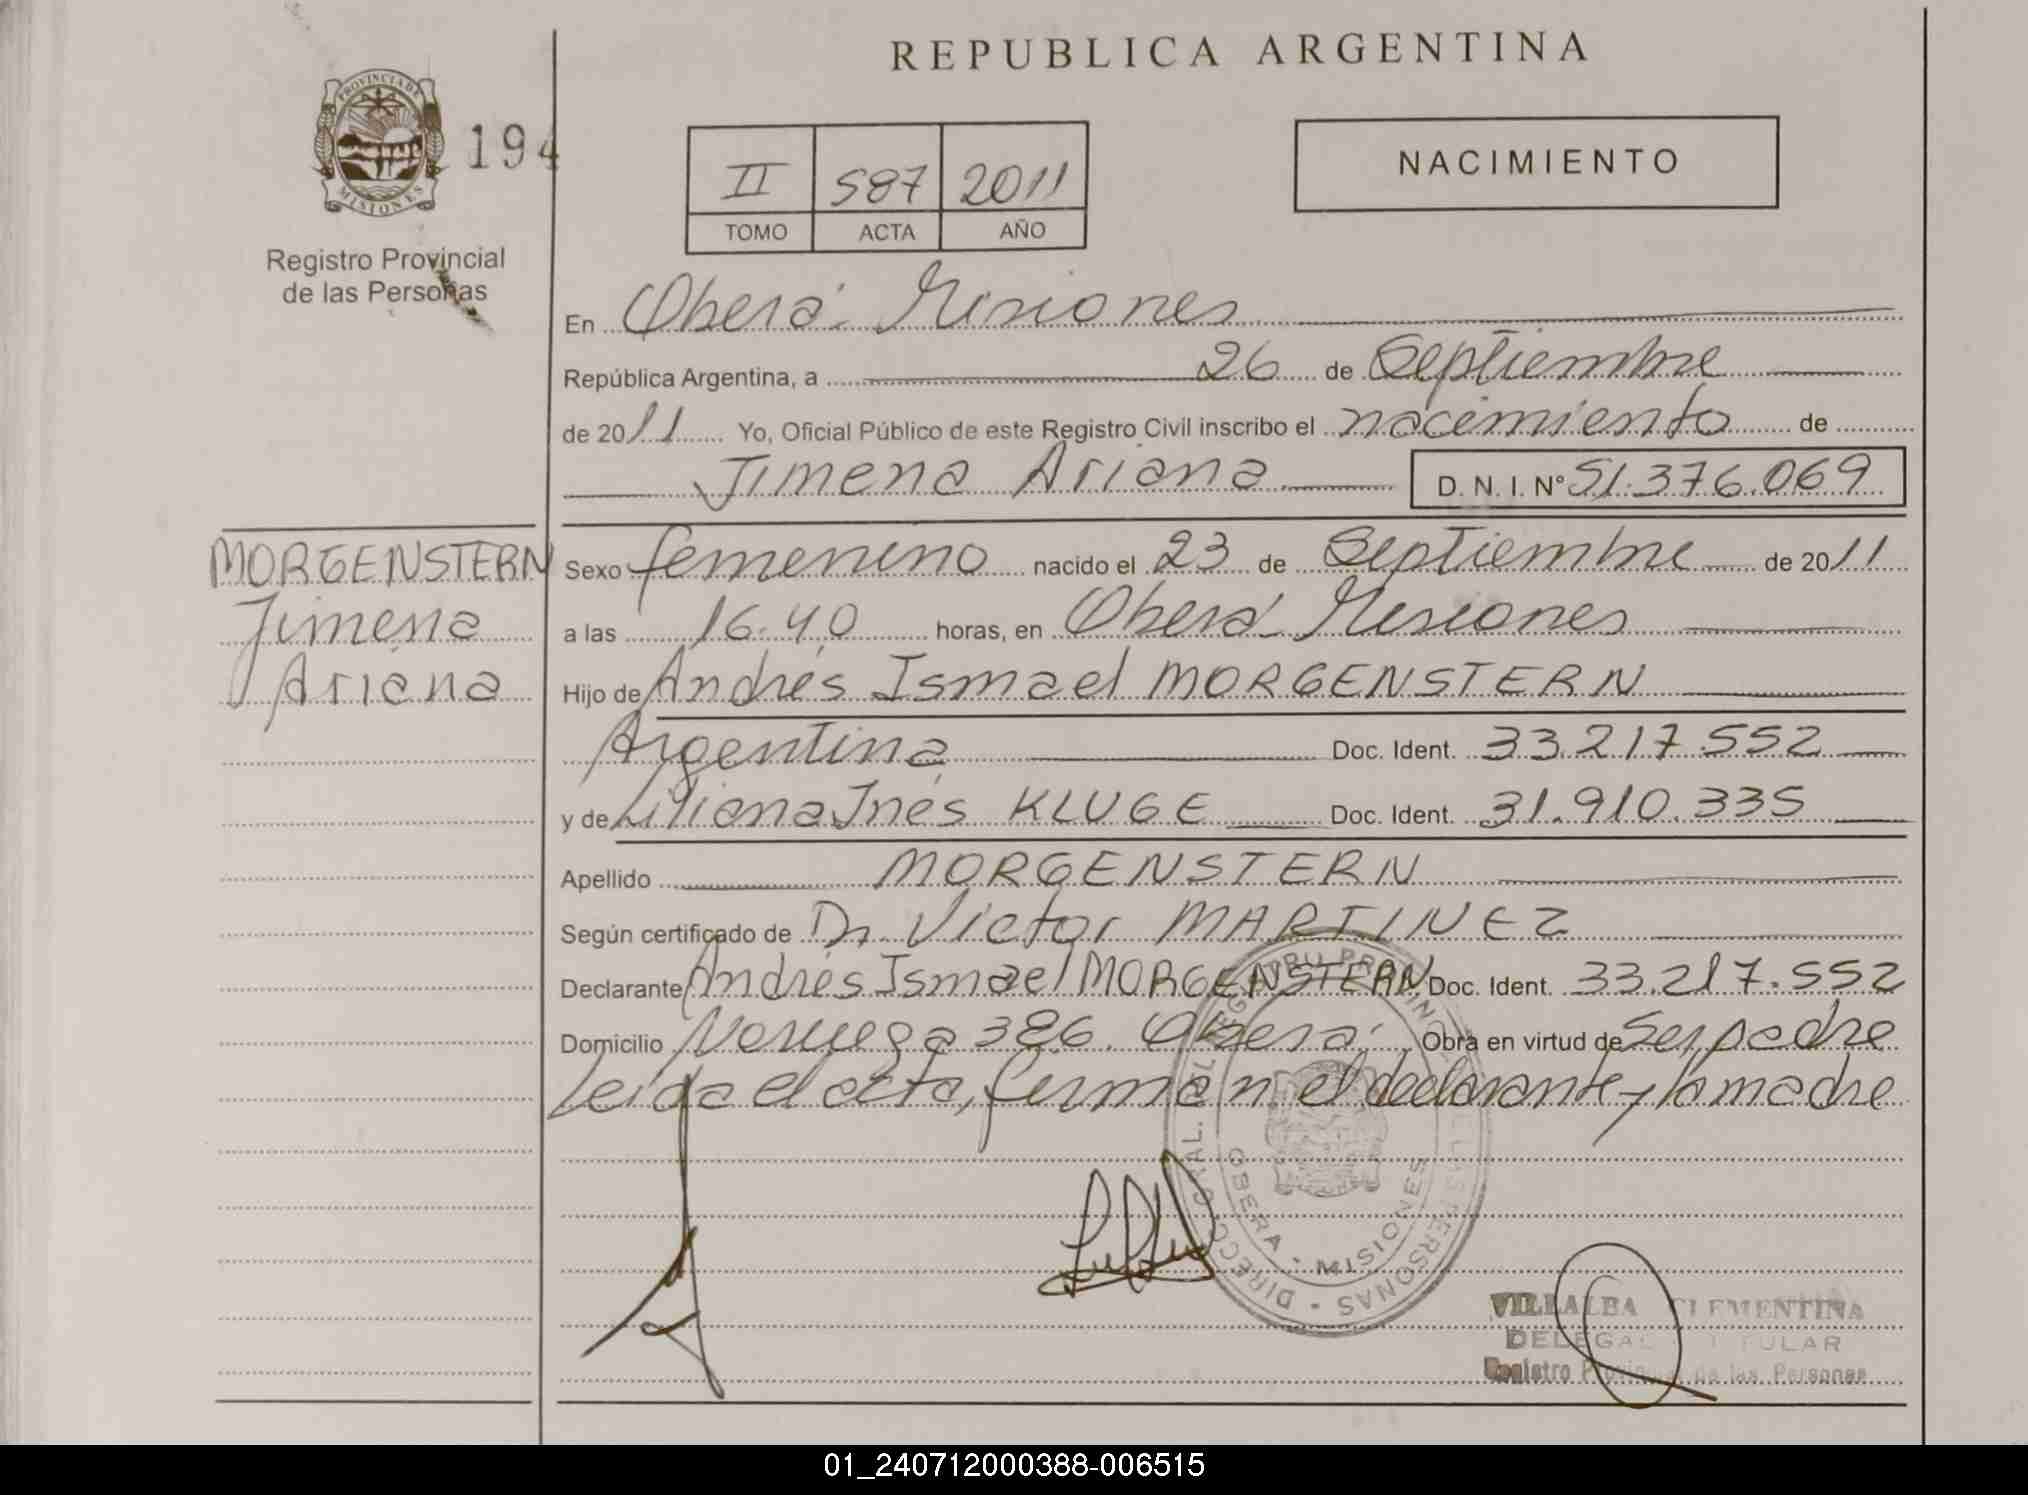 REPUBLICA ARGENTINA
PROVINCIA DE
MISIONES
194
Registro Provincial
de las Personas
II 587 2011
TOMO ACTA AÑO
NACIMIENTO
En Oberá. Misiones
República Argentina, a 26 de Septiembre
de 2011 Yo, Oficial Público de este Registro Civil inscribo el nacimiento de
Jimena Ariana D. N. I. N° 51.376.069
MORGENSTERN
Jimena
Ariana
Sexo femenino nacido el 23 de Septiembre de 2011
a las 16.40 horas, en Oberá Misiones
Hijo de Andrés Ismael MORGENSTERN
Argentina Doc. Ident. 33.217.552
y de Liliana Inés KLUGE Doc. Ident. 31.910.335
Apellido MORGENSTERN
Según certificado de Dr. Victor MARTINEZ
Declarante Andrés Ismael MORGENSTERN Doc. Ident. 33.217.552
Domicilio Noruega 386. Oberá. Obra en virtud de Ser padre
Leida el acta, firman el declarante y la madre
OBERA - MISIONES
VILLALBA CLEMENTINA
TITULAR
Registro Provincial de las Personas
01_240712000388-006515